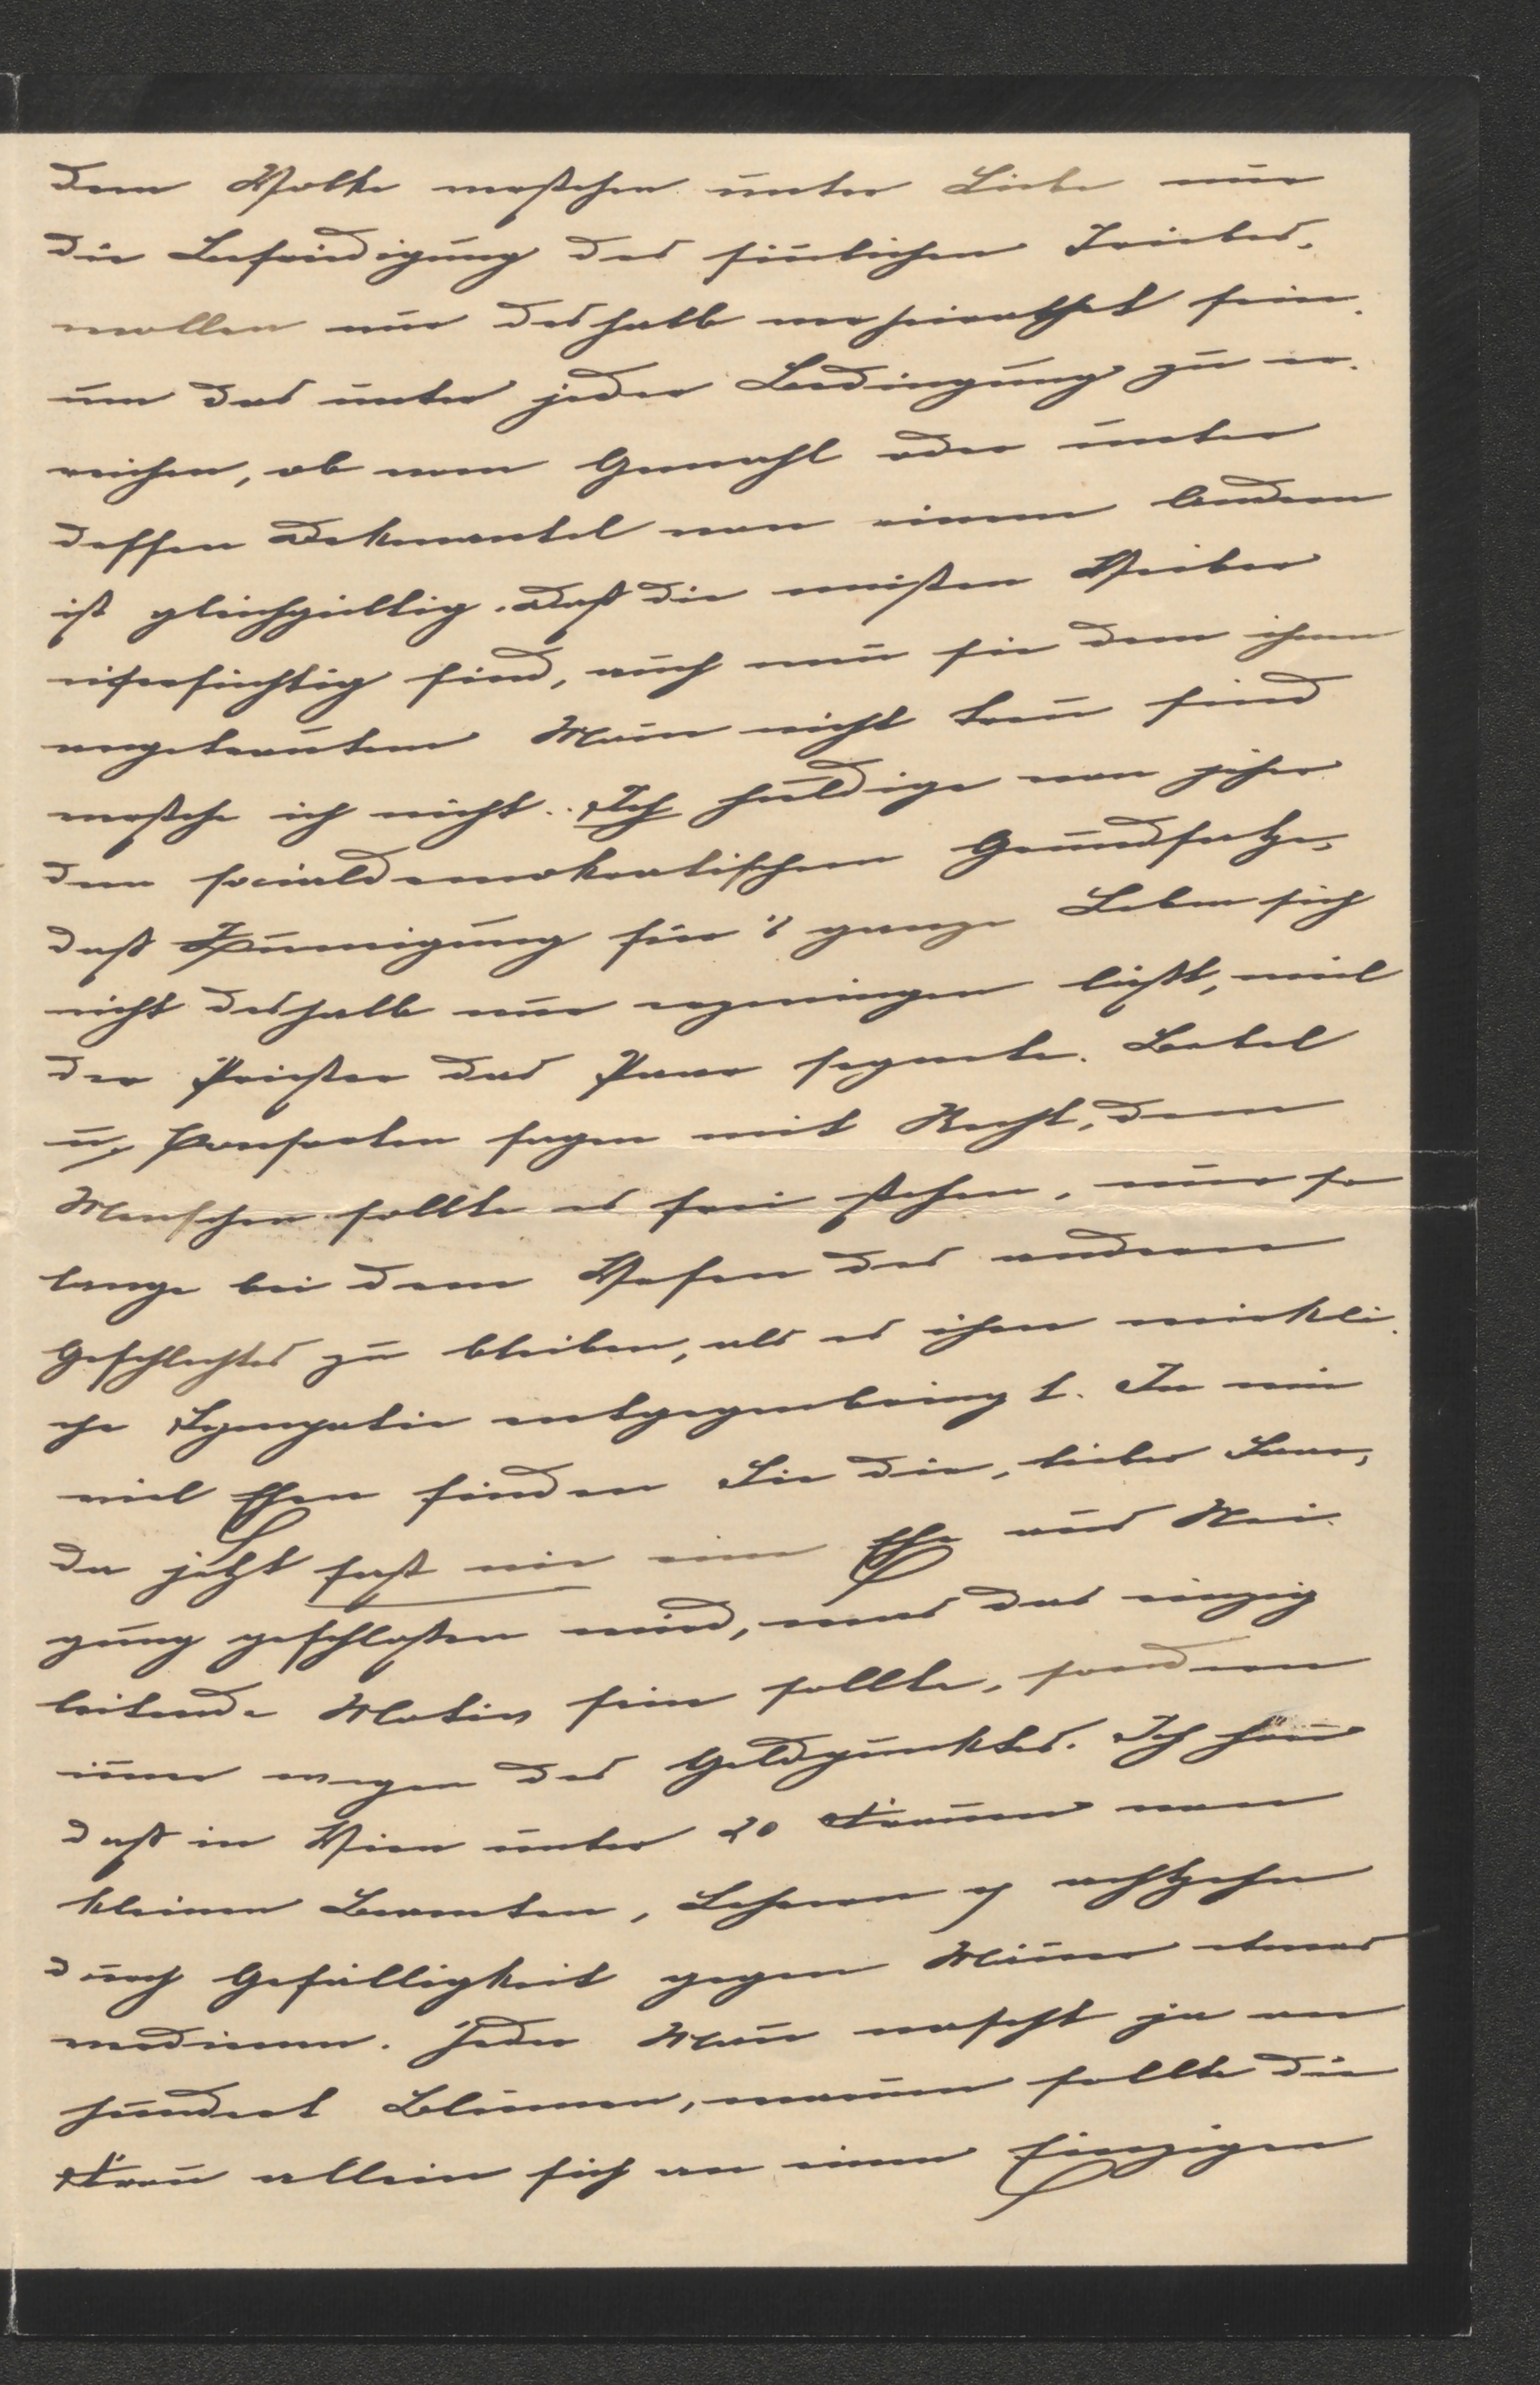 dem Volke verstehen unter Liebe nur
die Befriedigung des sinlichen Triebes.
wollen nur deshalb verheirathet sein.
um das unter jeder Bedingung zu er-
reichen, ob vom Gemahl oder unter
dessen Dekmantel von einem Andern
ist gleichgiltig. Daß die meisten Weiber
eifersüchtig sind, auch wen sie dem ihnen
angetrauten Man nicht treu sind
verstehe ich nicht. Ich huldige von jeher
dem socialdemokratischen Grundsatze,
daß Zuneigung für's ganze Leben sich
nicht deshalb nur erzwingen läßt, weil
der Priester das Paar segnete. Bebel
u. Konsorten sagen mit Recht, dem
Menschen sollte es frei stehen, nur so
lange bei dem Wesen des anderen
Geschlechtes zu bleiben, als es ihm wirkli-
che Sympatie entgegenbringt. In wie
viel Ehen finden Sie die, lieber Herr,
da jetzt fast nie eine Ehe aus Nei-
gung geschloßen wird, was das einzig
leitende Motiv sein sollte, sondern
imer wegen des Geldpunktes. Ich höre
daß in Wien unter 20 Frauen von
kleinen Beamten, Lehrern etc achtzehn
durch Gefälligkeit gegen Mäner etwas
verdienen. Jeder Man nascht ja an
hundert Blumen, warum sollte die
Frau allein sich an einen Einzigen